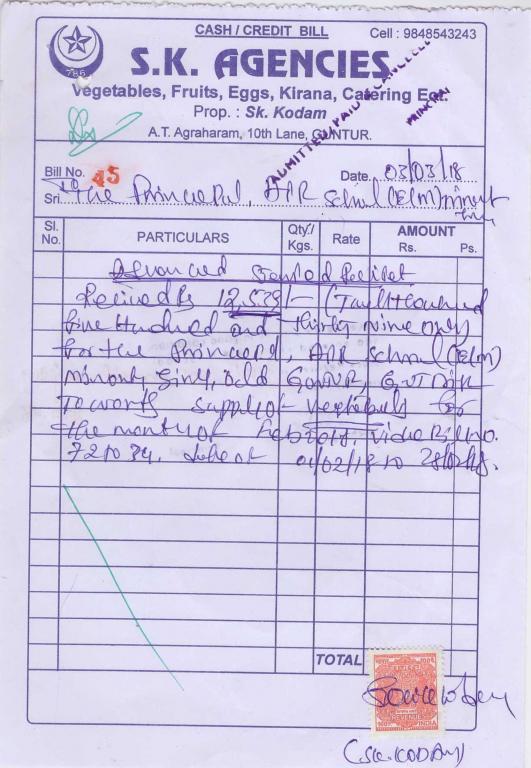 CASH / CREDIT BILL
Cell : 9848543243
786
S.K. AGENCIES
Vegetables, Fruits, Eggs, Kirana, Catering Ect.
Prop. : Sk. Kodam
A.T. Agraharam, 10th Lane, GUNTUR.
ADMITTED PAID & CANCELLED
PRINCIPAL
Bill No. 45
Date 03/03/18
To
Sri the Principal, APR School (E/M) Minority
Sl. No.
PARTICULARS
Qty./ Kgs.
Rate
AMOUNT
Rs.
Ps.
Advanced Stamped
Received Rs 12,539/-
five Hundred and thirty nine only
for the Principal, APR School (E/M)
Minority, Girls, Old
Towards supply of vegetables for
the month of Feb 2018 vide Bill No.
01/02/18 to 28/02/18.
TOTAL
REVENUE
INDIA
(SK. KODAM)